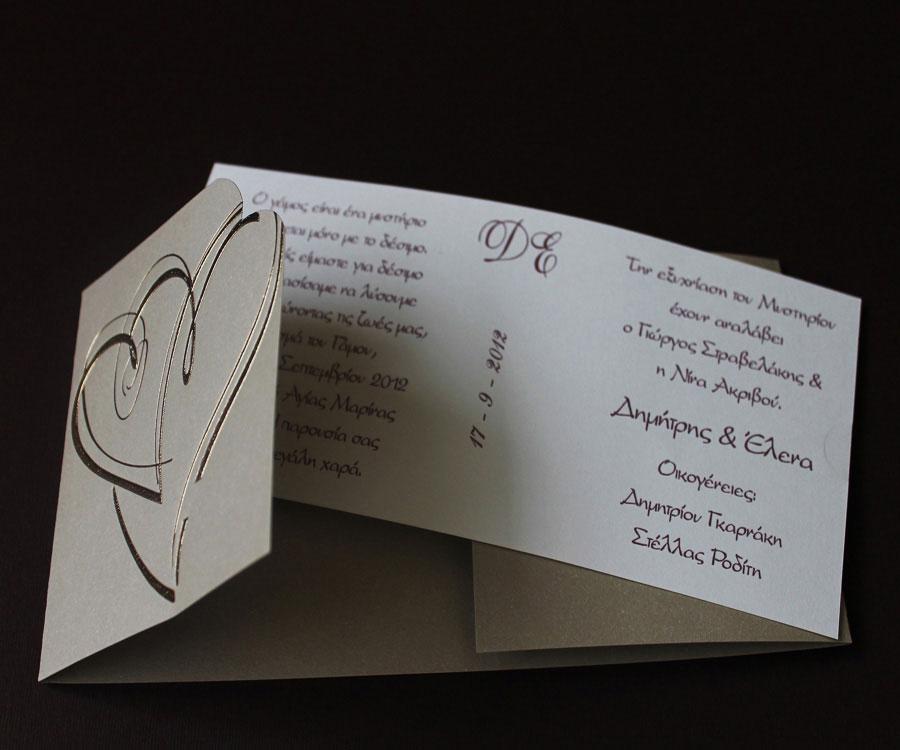 Ο γάμος είναι ένα μυστήριο
μόνο με το δέσιμο.
είμαστε για δέσιμο
να λύσουμε
τις ζωές μας,
του Γάμου,
Σεπτεμβρίου 2012
Αγίας Μαρίνας
παρουσία σας
χαρά.
DE
17 - 9 - 2012
Την εξιχνίαση του Μυστηρίου
έχουν αναλάβει
ο Γιώργος Στραβελάκης &
η Νίνα Ακριβού.
Δημήτρης & Έλενα
Οικογένειες:
Δημητρίου Γκαρνάκη
Στέλλας Ροδίτη